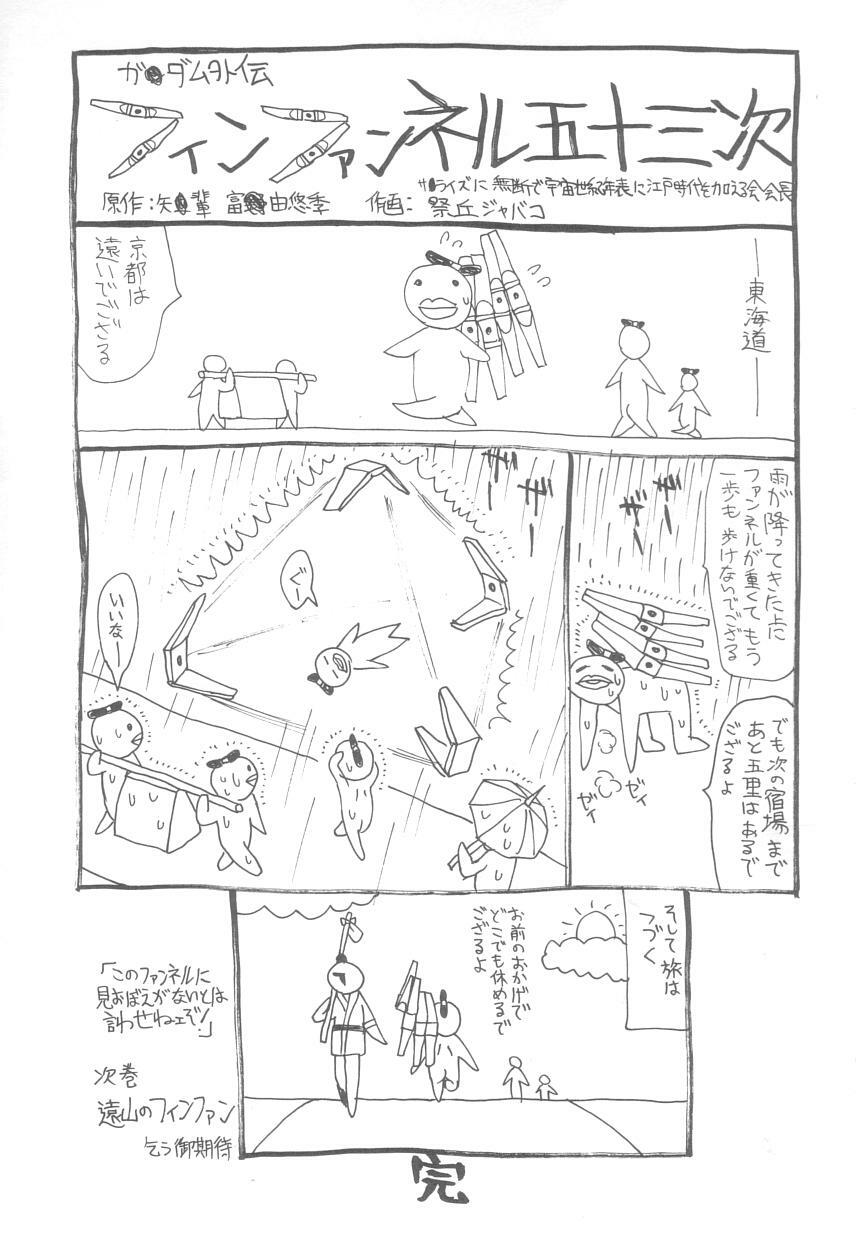 ガ●ダム外伝
フィンファンネル五十三次
サ●ライズに無断で宇宙世紀年表に江戸時代を加える会会長
原作：矢●輩 富●由悠季 作画：祭丘ジャバコ
―東海道―
京都は
遠いでござる
雨が降ってきた上に
ファンネルが重くてもう
一歩も歩けないでござる
でも次の宿場まで
あと五里はあるで
ござるよ
ギー
ギー
ゼィ
ゼィ
チー
チー
ぐー
いいなー
そして旅は
つづく
お前のおかげで
どこでも休めるで
ござるよ
「このファンネルに
見おぼえがないとは
言わせねェぞ！」
次巻
遠山のフィンファン
乞う御期待
完